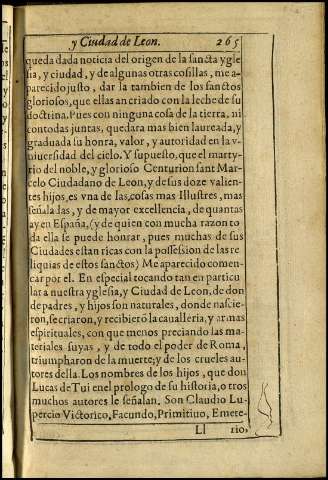 y Ciudad de Leon. 265
queda dada noticia del origen de la sancta ygle
sia, y ciudad, y de algunas otras cosillas, me a-
parecido justo, dar la tambien de los sanctos
gloriosos, que ellas an criado con la leche de su
doctrina. Pues con ninguna cosa de la tierra, ni
con todas juntas, quedara mas bien laureada, y
graduada su honra, valor, y autoridad en la v-
niuersidad del cielo. Y supuesto, que el marty-
rio del noble, y glorioso Centurion sant Mar-
celo Ciudadano de Leon, y de sus doze valien-
tes hijos, es vna de las cosas mas Illustres, mas
señala las, y de mayor excellencia, de quantas
ay en España, (y de quien con mucha razon to
da ella se puede honrar, pues muchas de sus
Ciudades estan ricas con la possession de las re
liquias de estos sanctos) Me aparecido comen-
çar por el. En especial tocando tan en particu
lar a nuestra yglesia, y Ciudad de Leon, de don
de padres, y hijos son naturales, donde nascie-
ron, se criaron, y recibierō la caualleria, y armas
espirituales, con que menos preciando las ma-
teriales suyas, y de todo el poder de Roma,
triumpharon de la muerte; y de los crueles au-
tores della. Los nombres de los hijos, que don
Lucas de Tui en el prologo de su historia, o tros
muchos autores le señalan. Son Claudio Lu-
percio Victorico, Facundo, Primitiuo, Emete-
Ll rio,